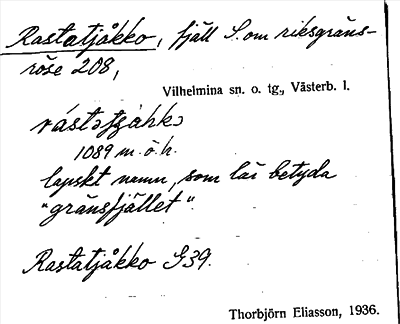 Rastatjåkko, fjäll S. om riksgräns-
röse 208,
Vilhelmina sn. o. tg., Västerb. l.
1089 m. ö. h.
lapskt namn, som lär betyda
"gränsfjället".
Rastatjåkko G39.
Thorbjörn Eliasson, 1936.